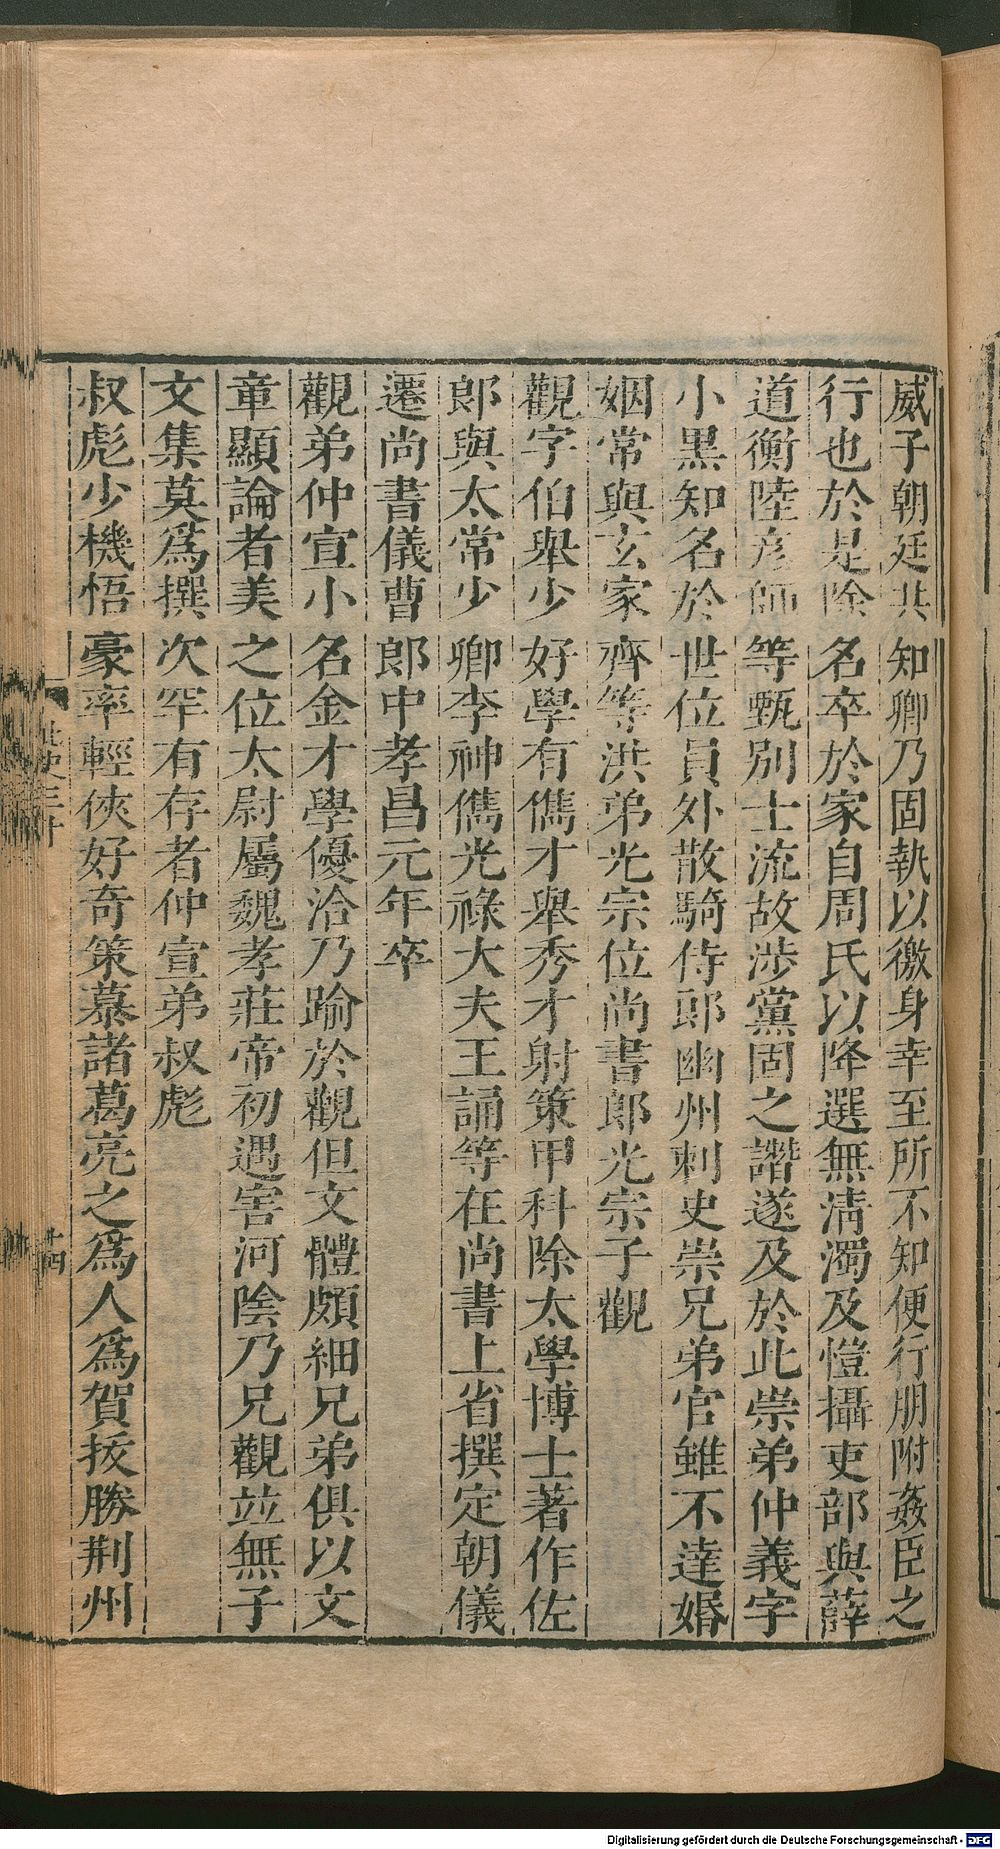 威子朝廷共知卿乃固執以徼身幸至所不知便行朋附姦臣之
行也於是除名卒於家自周氏以降選無淸濁及愷攝吏部與薛
道衡陸彥師等甄別士流故涉黨固之譖遂及於此崇弟仲義字
小黑知名於世位員外散騎侍郎幽州刺史崇兄弟官雖不達婚
姻常與玄家齊等洪弟光宗位尚書郎光宗子觀
觀字伯舉少好學有儁才舉秀才射策甲科除太學博士著作佐
郎與太常少卿李神儁光祿大夫王誦等在尚書上省撰定朝儀
遷尚書儀曹郎中孝昌元年卒
觀弟仲宣小名金才學優洽乃踰於觀但文體頗細兄弟俱以文
章顯論者美之位太尉屬魏孝莊帝初遇害河陰乃兄觀並無子
文集莫爲撰次罕有存者仲宣弟叔彪
叔彪少機悟豪率輕俠好奇策慕諸葛亮之爲人爲賀拔勝荆州
北史三十
十四
Digitalisierung gefördert durch die Deutsche Forschungsgemeinschaft - DFG